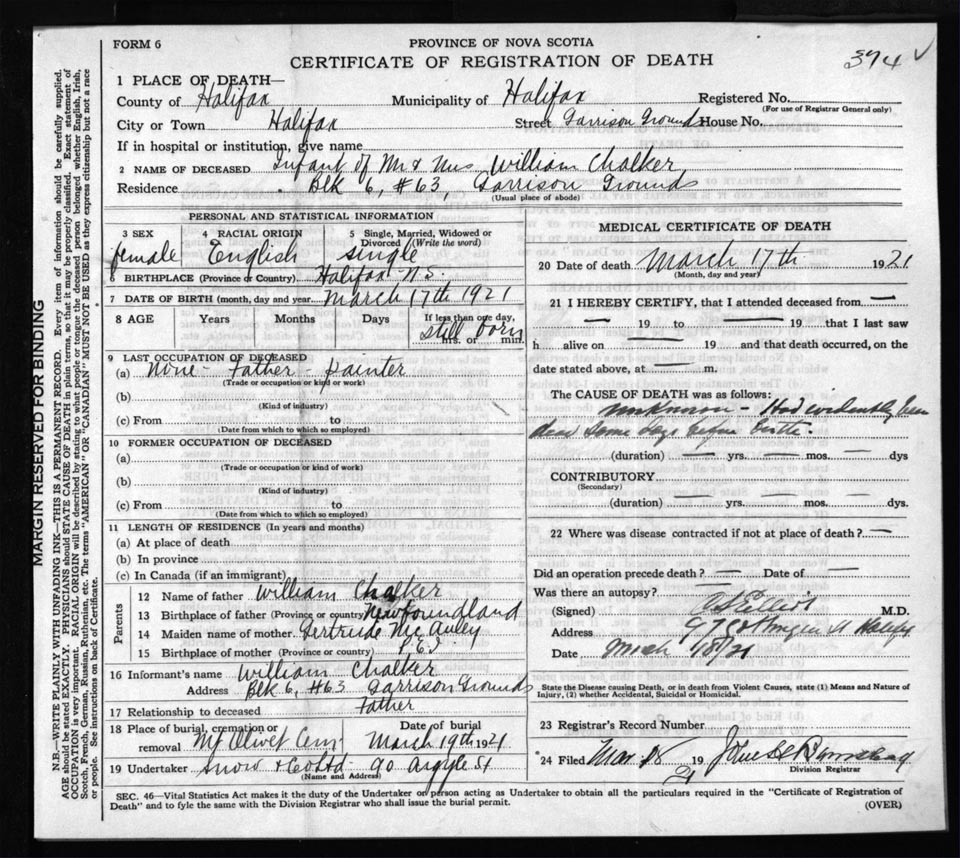 FORM 6
PROVINCE OF NOVA SCOTIA
CERTIFICATE OF REGISTRATION OF DEATH
374 ✓
1 PLACE OF DEATH—
County of Halifax Municipality of Halifax Registered No.
(For use of Registrar General only)
City or Town Halifax Street Garrison Grounds House No.
If in hospital or institution, give name
2 NAME OF DECEASED Infant of Mr & Mrs William Chalker
Residence Blk 6, #63, Garrison Grounds
(Usual place of abode)
PERSONAL AND STATISTICAL INFORMATION
3 SEX 4 RACIAL ORIGIN 5 Single, Married, Widowed or Divorced (Write the word)
female English single
6 BIRTHPLACE (Province or Country) Halifax N.S.
7 DATE OF BIRTH (month, day and year March 17th 1921
8 AGE Years Months Days If less than one day,
hrs. or min.
still born
9 LAST OCCUPATION OF DECEASED
(a) None - Father - painter
(Trade or occupation or kind of work)
(b)
(Kind of industry)
(c) From to
(Date from which to which so employed)
10 FORMER OCCUPATION OF DECEASED
(a)
(Trade or occupation or kind of work)
(b)
(Kind of industry)
(c) From to
(Date from which to which so employed)
11 LENGTH OF RESIDENCE (In years and months)
(a) At place of death
(b) In province
(c) In Canada (if an immigrant)
Parents
12 Name of father William Chalker
13 Birthplace of father (Province or country) Newfoundland
14 Maiden name of mother Gertrude McAuley
15 Birthplace of mother (Province or country) P.E.I.
16 Informant's name William Chalker
Address Blk 6, #63 Garrison Grounds
17 Relationship to deceased Father
18 Place of burial, cremation or removal Mt Olivet Cem Date of burial March 19th 1921
19 Undertaker Snow & Co Ltd 90 Argyle St
(Name and Address)
MEDICAL CERTIFICATE OF DEATH
20 Date of death March 17th 1921
(Month, day and year)
21 I HEREBY CERTIFY, that I attended deceased from —
— 19 to — 19 that I last saw
h alive on — 19 and that death occurred, on the
date stated above, at — m.
The CAUSE OF DEATH was as follows:
unknown - Had evidently been
dead some days before birth.
(duration) — yrs. — mos. — dys
CONTRIBUTORY —
(Secondary)
(duration) — yrs. — mos. — dys.
22 Where was disease contracted if not at place of death? —
Did an operation precede death? — Date of —
Was there an autopsy?
(Signed) M.D.
Address Halifax
Date March 18/21
State the Disease causing Death, or in death from Violent Causes, state (1) Means and Nature of Injury, (2) whether Accidental, Suicidal or Homicidal.
23 Registrar's Record Number
24 Filed Mar 18 1921 John
Division Registrar
SEC. 46—Vital Statistics Act makes it the duty of the Undertaker or person acting as Undertaker to obtain all the particulars required in the "Certificate of Registration of
Death" and to fyle the same with the Division Registrar who shall issue the burial permit. (OVER)
MARGIN RESERVED FOR BINDING
N.B.—WRITE PLAINLY WITH UNFADING INK—THIS IS A PERMANENT RECORD. Every item of information should be carefully supplied.
AGE should be stated EXACTLY. PHYSICIANS should STATE CAUSE OF DEATH in plain terms, so that it may be properly classified. Exact statement of
OCCUPATION is very important. RACIAL ORIGIN will be described by stating to what people or tongue the deceased person belonged whether English, Irish,
Scotch, French, German, Russian, Ruthenian, etc. The terms "AMERICAN" OR "CANADIAN" MUST NOT BE USED as they express citizenship but not a race
or people. See instructions on back of Certificate.